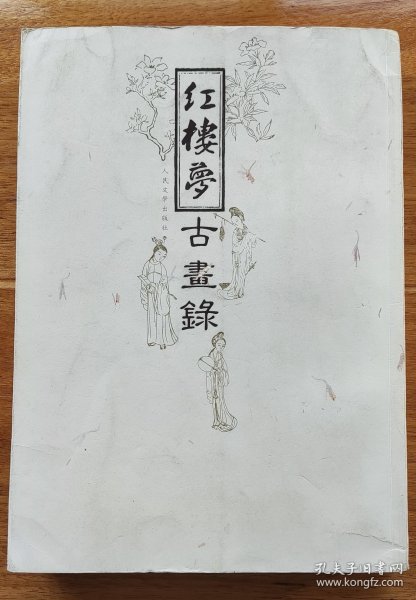 红楼夢
古畫錄
人民文学出版社
孔夫子旧书网
www.kongfz.com